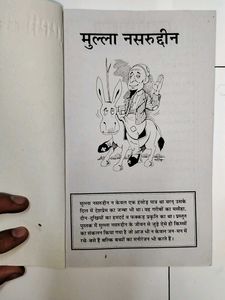 मुल्ला नसरुद्दीन
मुल्ला नसरुद्दीन न केवल एक हंसोड़ पात्र था वरन् उसके
दिल में देशप्रेम का जज्बा भी था। वह गरीबों का मसीहा,
दीन-दुखियों का हमदर्द व फक्कड़ प्रकृति का था। प्रस्तुत
पुस्तक में मुल्ला नसरुद्दीन के जीवन से जुड़े ऐसे ही किस्सों
का संकलन किया गया है जो आज भी न केवल जन-मन में
रचे-बसे हैं बल्कि बच्चों का मनोरंजन भी करते हैं।